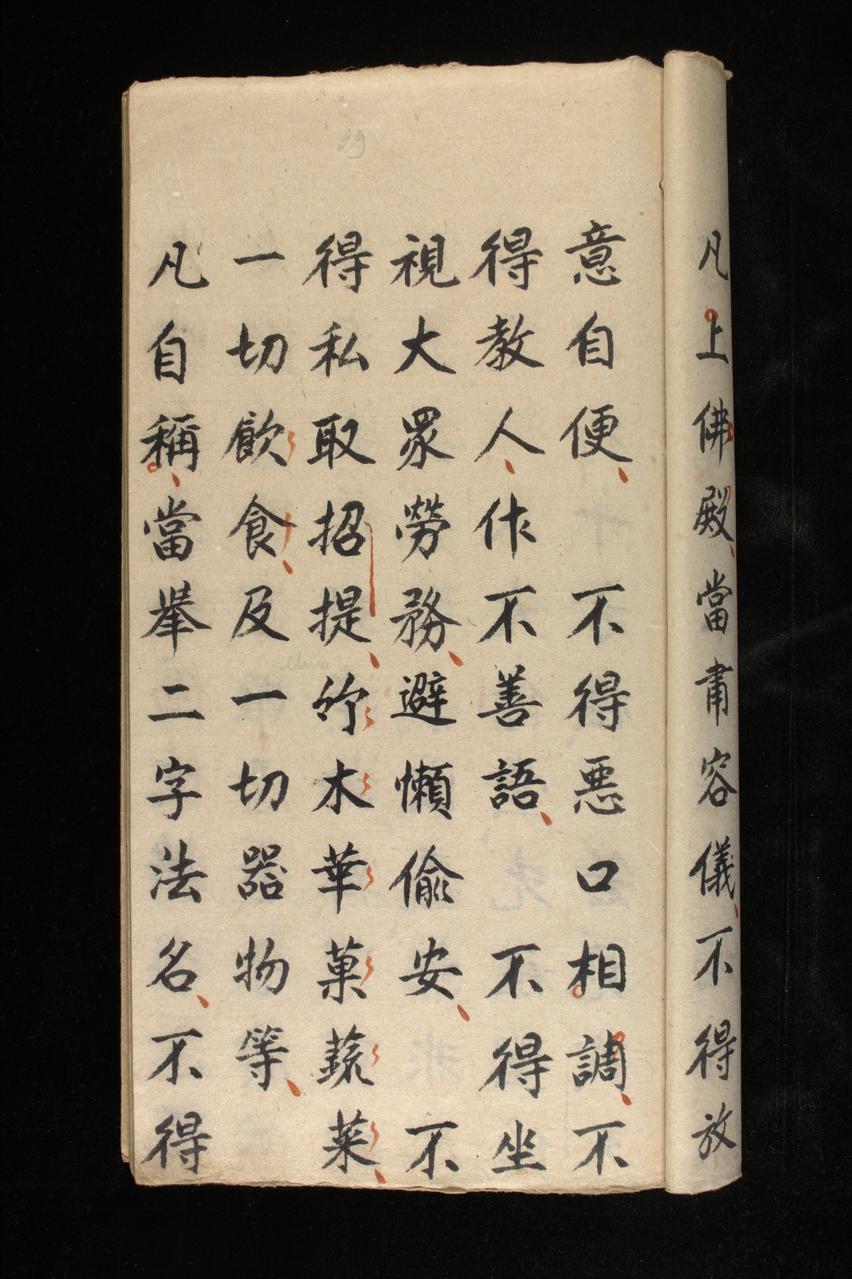 凡上佛殿當肅容儀不得放
意自便 不得惡口相調不
得教人作不善語 不得坐
視大眾勞務避懶偷安 不
得私取招提竹木華菓蔬菜
一切飲食及一切器物等
凡自稱當举二字法名不得